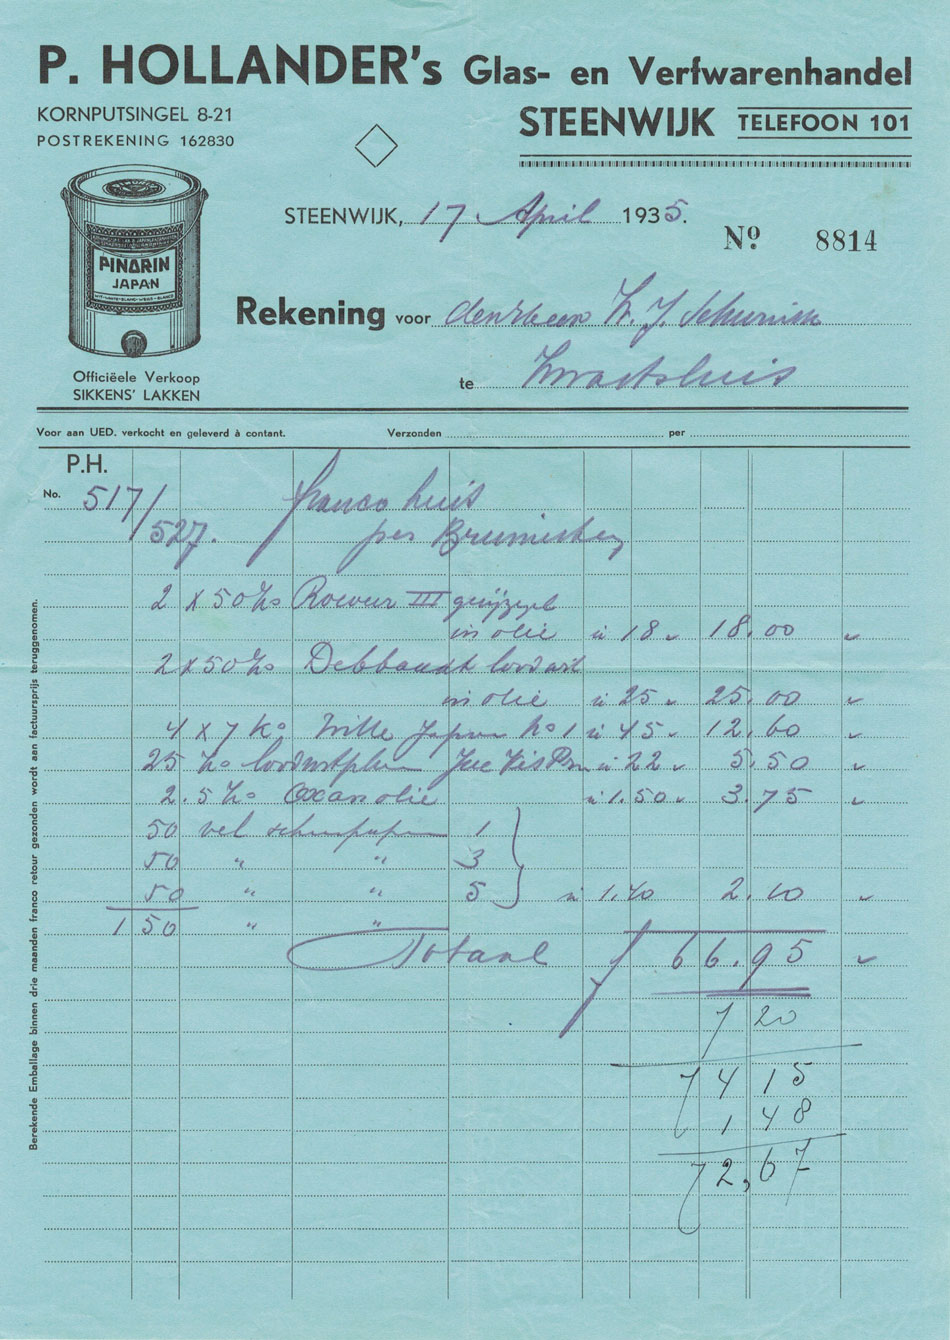 P. HOLLANDER's Glas- en Verfwarenhandel
KORNPUTSINGEL 8-21
POSTREKENING 162830
STEENWIJK TELEFOON 101
PINARIN
JAPAN
Officiëele Verkoop
SIKKENS' LAKKEN
STEENWIJK, 17 April 1935.
Nº 8814
Rekening voor den Heer H. J.
te
Voor aan UED. verkocht en geleverd à contant. Verzonden per
P.H.
No. 517/
527.
franco huis
per
2 x 50 Ko III
in olie à 18 18.00
2 x 50 Ko
in olie à 25 25.00
4 x 7 Ko Japan No 1 à 45 12.60
25 Ko à 22 5.50
2.5 Ko olie à 1.50 3.75
50 vel 1
50 " " 3
50 " " 5 à 1.40 2.10
150 " "
Totaal f 66.95
7 20
74 15
1 48
72,67
Berekende Emballage binnen drie maanden franco retour gezonden wordt aan factuursprijs teruggenomen.